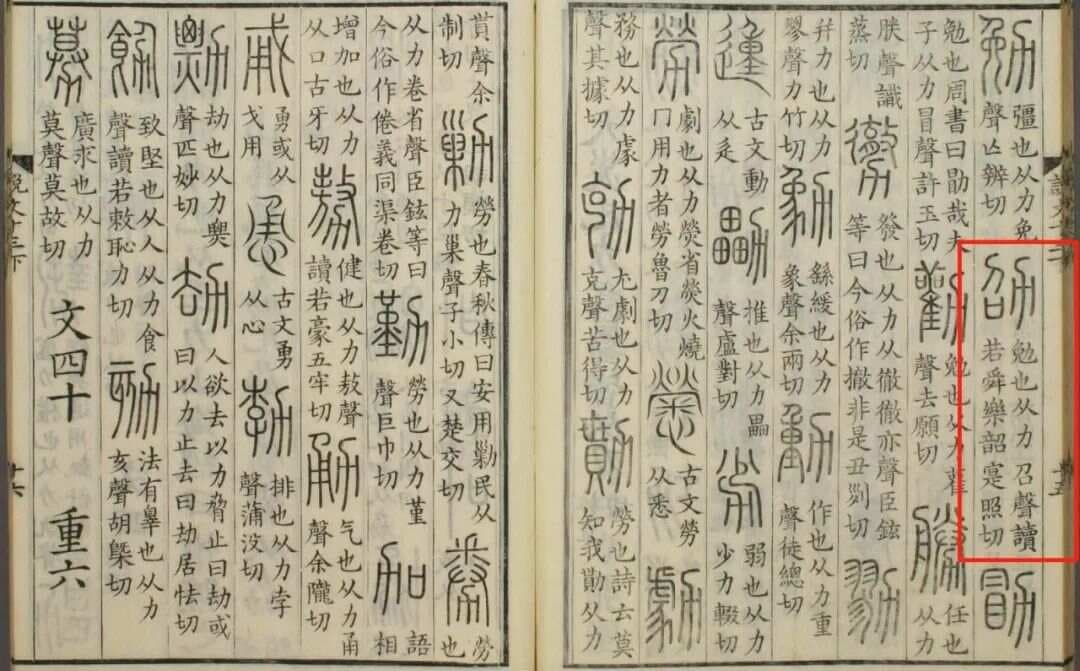 勉彊也从力免聲亡辨切劭勉也从力召聲讀若舜樂韶寔照切勖
勉也周書曰勖哉夫子从力冒聲許玉切勸勉也从力雚聲去願切勝任也从力
朕聲識蒸切勶發也从力从徹徹亦聲臣鉉等曰今俗作撤非是丑列切勠
并力也从力翏聲力竹切勨繇緩也从力象聲余兩切動作也从力重聲徒總切
𨔝古文動从辵勵推也从力畾聲盧對切劣弱也从力少力輟切
勞劇也从力熒省熒火燒冂用力者勞魯刀切𢥒古文勞从悉勮
務也从力豦聲其據切勀尤劇也从力克聲苦得切勩勞也詩云莫知我勩从力
貰聲余制切勦勞也春秋傳曰安用勦民从力巢聲子小切又楚交切券勞也
从力卷省聲臣鉉等曰今俗作倦義同渠卷切勤勞也从力堇聲巨巾切加語相
增加也从力从口古牙切勢健也从力敖聲讀若豪五牢切勇气也从力甬聲余隴切
𢦩勇或从戈用恿古文勇从心勃排也从力孛聲蒲没切
勡劫也从力票聲匹妙切劫人欲去以力脅止曰劫或曰以力止去曰劫居怯切
飭致堅也从人从力食聲讀若敕恥力切劾法有辠也从力亥聲胡槩切
募廣求也从力莫聲莫故切
文四十 重六
說文十三下 十六